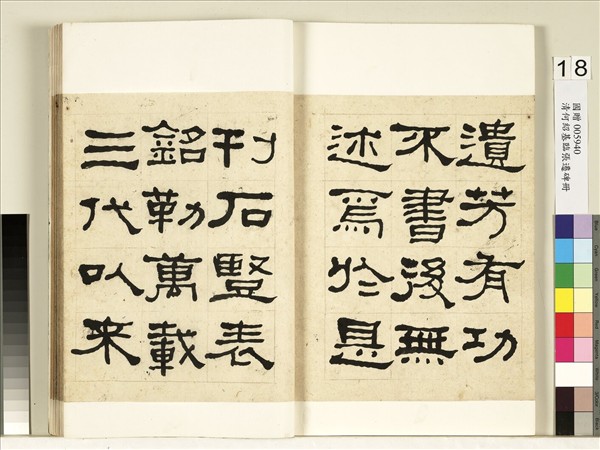 遺芳有功
不書後無
述焉於是
刊石竪表
銘勒萬載
三代以来
18
國贈 005940
清何紹基臨張遷碑冊